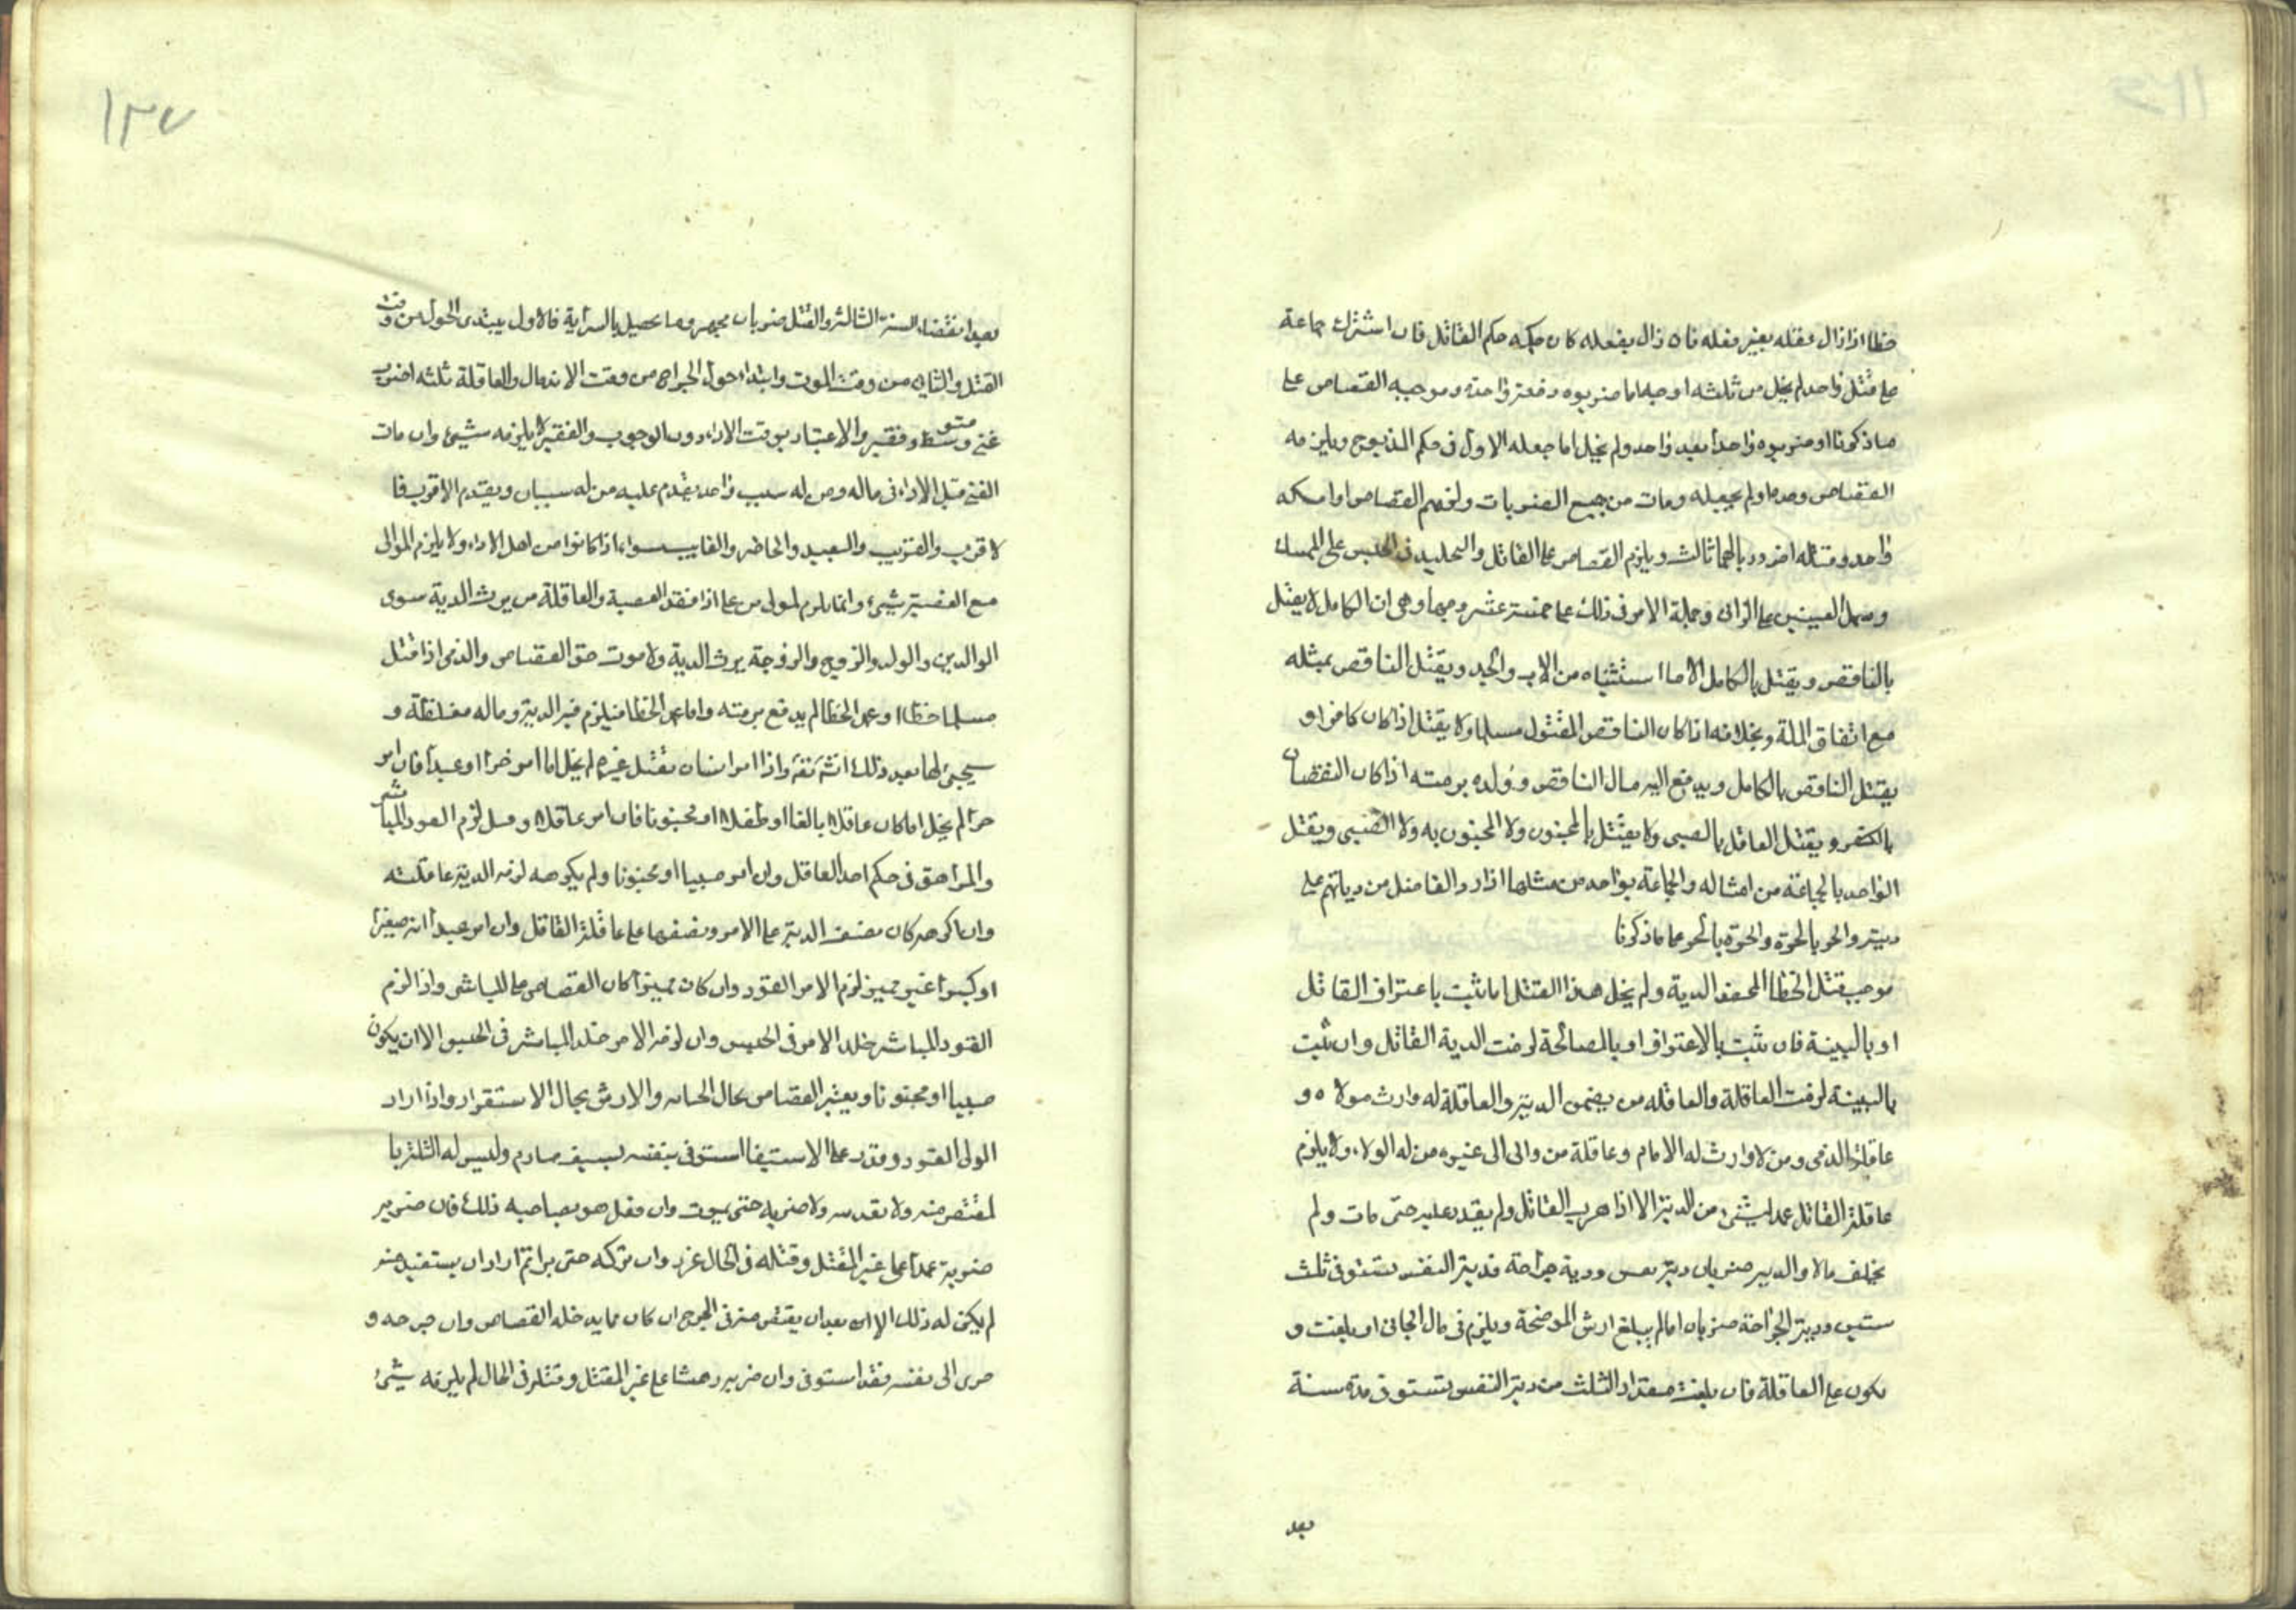 خطا اذا زال عقله بغير فعله فان زال بفعله كان حكمه حكم القاتل فان اشترك جماعة
على قتل واحد لم يخل من ثلثه اوجه اما ضربوه دفعة واحدة وموجبه القصاص على
ما ذكرنا او ضربوه واحدا بعد واحد ولم يخل اما جعله الاول فى حكم المذبوح ويلزمه
القصاص وحده او لم يجعله ومات من جميع الضربات ولزمهم القصاص او امسكه
واحد وقتله اخر وربا لهما ثالث ويلزم القصاص على القاتل والتخليد فى الحبس على الممسك
وسمل العينين على الرائى وجملة الامر فى ذلك على خمسة عشر وجها وهى ان الكامل لا يقتل
بالناقص ويقتل بالكامل الا ما استثناه من الاب والجد ويقتل الناقص بمثله
مع اتفاق الملة وبخلافه اذا كان الناقص المقتول مسلما ولا يقتل اذا كان كافرا و
يقتل الناقص بالكامل ويدفع اليه مال الناقص وولده برمته اذا كان النقصان
بالكفر ويقتل العاقل بالصبى ولا يقتل بالمجنون ولا المجنون به ولا الصبى ويقتل
الواحد بالجماعة من امثاله والجماعة بواحد من مثلها اذا رد الفاضل من دياتهم على
ديته والحر بالحرة والحرة بالحر على ما ذكرنا
موجب قتل الخطا المحض الدية ولم يخل هذا القتل اما ثبت باعتراف القاتل
او بالبينة فان ثبت بالاعتراف او بالمصالحة لزمت الدية القاتل وان ثبت
بالبينة لزمت العاقلة والعاقله من يضمن الدية والعاقلة له وارث مولاه و
عاقلة الذمى ومن لا وارث له الامام وعاقلة من والى الى غيره من له الولاء ولا يلزم
عاقلة القاتل عمدا شىء من الدية الا اذا هرب القاتل ولم يقدر عليه حتى مات ولم
يخلف مالا والدية ضربان دية نفس ودية جراحة فدية النفس تستوفى ثلث
سنين ودية الجراحة ضربان اما لم يبلغ ارش الموضحة ويلزم فى مال الجانى او بلغت و
يكون على العاقلة فان بلغت مقدار الثلث من دية النفس تستوفى مدة سنة
بعد
١٣٧
بعد انقضاء السنة الثالثة والقتل ضربان مجهز وما يحصل بالسراية فالاول يبتدى الحول من وقت
القتل والثانى من وقت الموت وابتداء حول الجراح من وقت الاندمال والعاقلة ثلثه اضرب
غنى ومتوسط وفقير والاعتبار بوقت الاداء دون الوجوب والفقير لا يلزمه شىء وان مات
الغنى قبل الاداء فى ماله ومن له سبب واحد يقدم عليه من له سببان ويقدم الاقرب فا
لاقرب والقريب والبعيد والحاضر والغايب سواء اذا كانوا من اهل الاداء ولا يلزم الموالى
مع العصبة شىء وانما يلزم المولى من على اذا فقد العصبة والعاقلة من يرث الدية سوى
الوالدين والولد والزوج والزوجة يرث الدية ولا يرث حق القصاص والذمى اذا قتل
مسلما خطا او عمد الخطا لم يدفع برمته واما عمد الخطا فيلزم فيه الدية وماله مغلظة و
سيجئ لها بعد ذلك انشاء الله واذا امر انسان بقتل غيره لم يخل اما امر حرا او عبدا فان امر
حرا لم يخل اما كان عاقلا بالغا او طفلا او مجنونا فان امر عاقلا وقتل لزم القود المباشر
والمراهق فى حكم احد العاقل وان امر صبيا او مجنونا ولم يكرهه لزم الدية عاقلته
وان اكرهه كان نصف الدية على الامر ونصفها على عاقلة القاتل وان امر عبدا له صغيرا
او كبيرا غير مميز لزم الامر القود وان كان مميزا كان القصاص على المباشر واذا لزم
القود المباشر خلد الامر فى الحبس وان لزم الامر خلد المباشر فى الحبس الا ان يكون
صبيا او مجنونا ويعتبر القصاص بحال الجناية والارش بحال الاستقرار واذا اراد
الولى القود وقدر على الاستيفا استوفى بنفسه بسيف صارم وليس له المثلة با
لمقتص منه ولا تعذيبه ولا ضربه حتى يموت وان فعل هو بصاحبه ذلك فان ضربه
ضربة عمدا على غير المقتل وقتله فى الحال عزر وان تركه حتى برا ثم اراد ان يستقيد منه
لم يكن له ذلك الا ان بعد ان يقتص منه فى الجرح ان كان مما يدخله القصاص وان جرحه و
سرى الى نفسه فقد استوفى وان ضربه دهشا على غير المقتل وقتله فى الحال لم يلزمه شىء